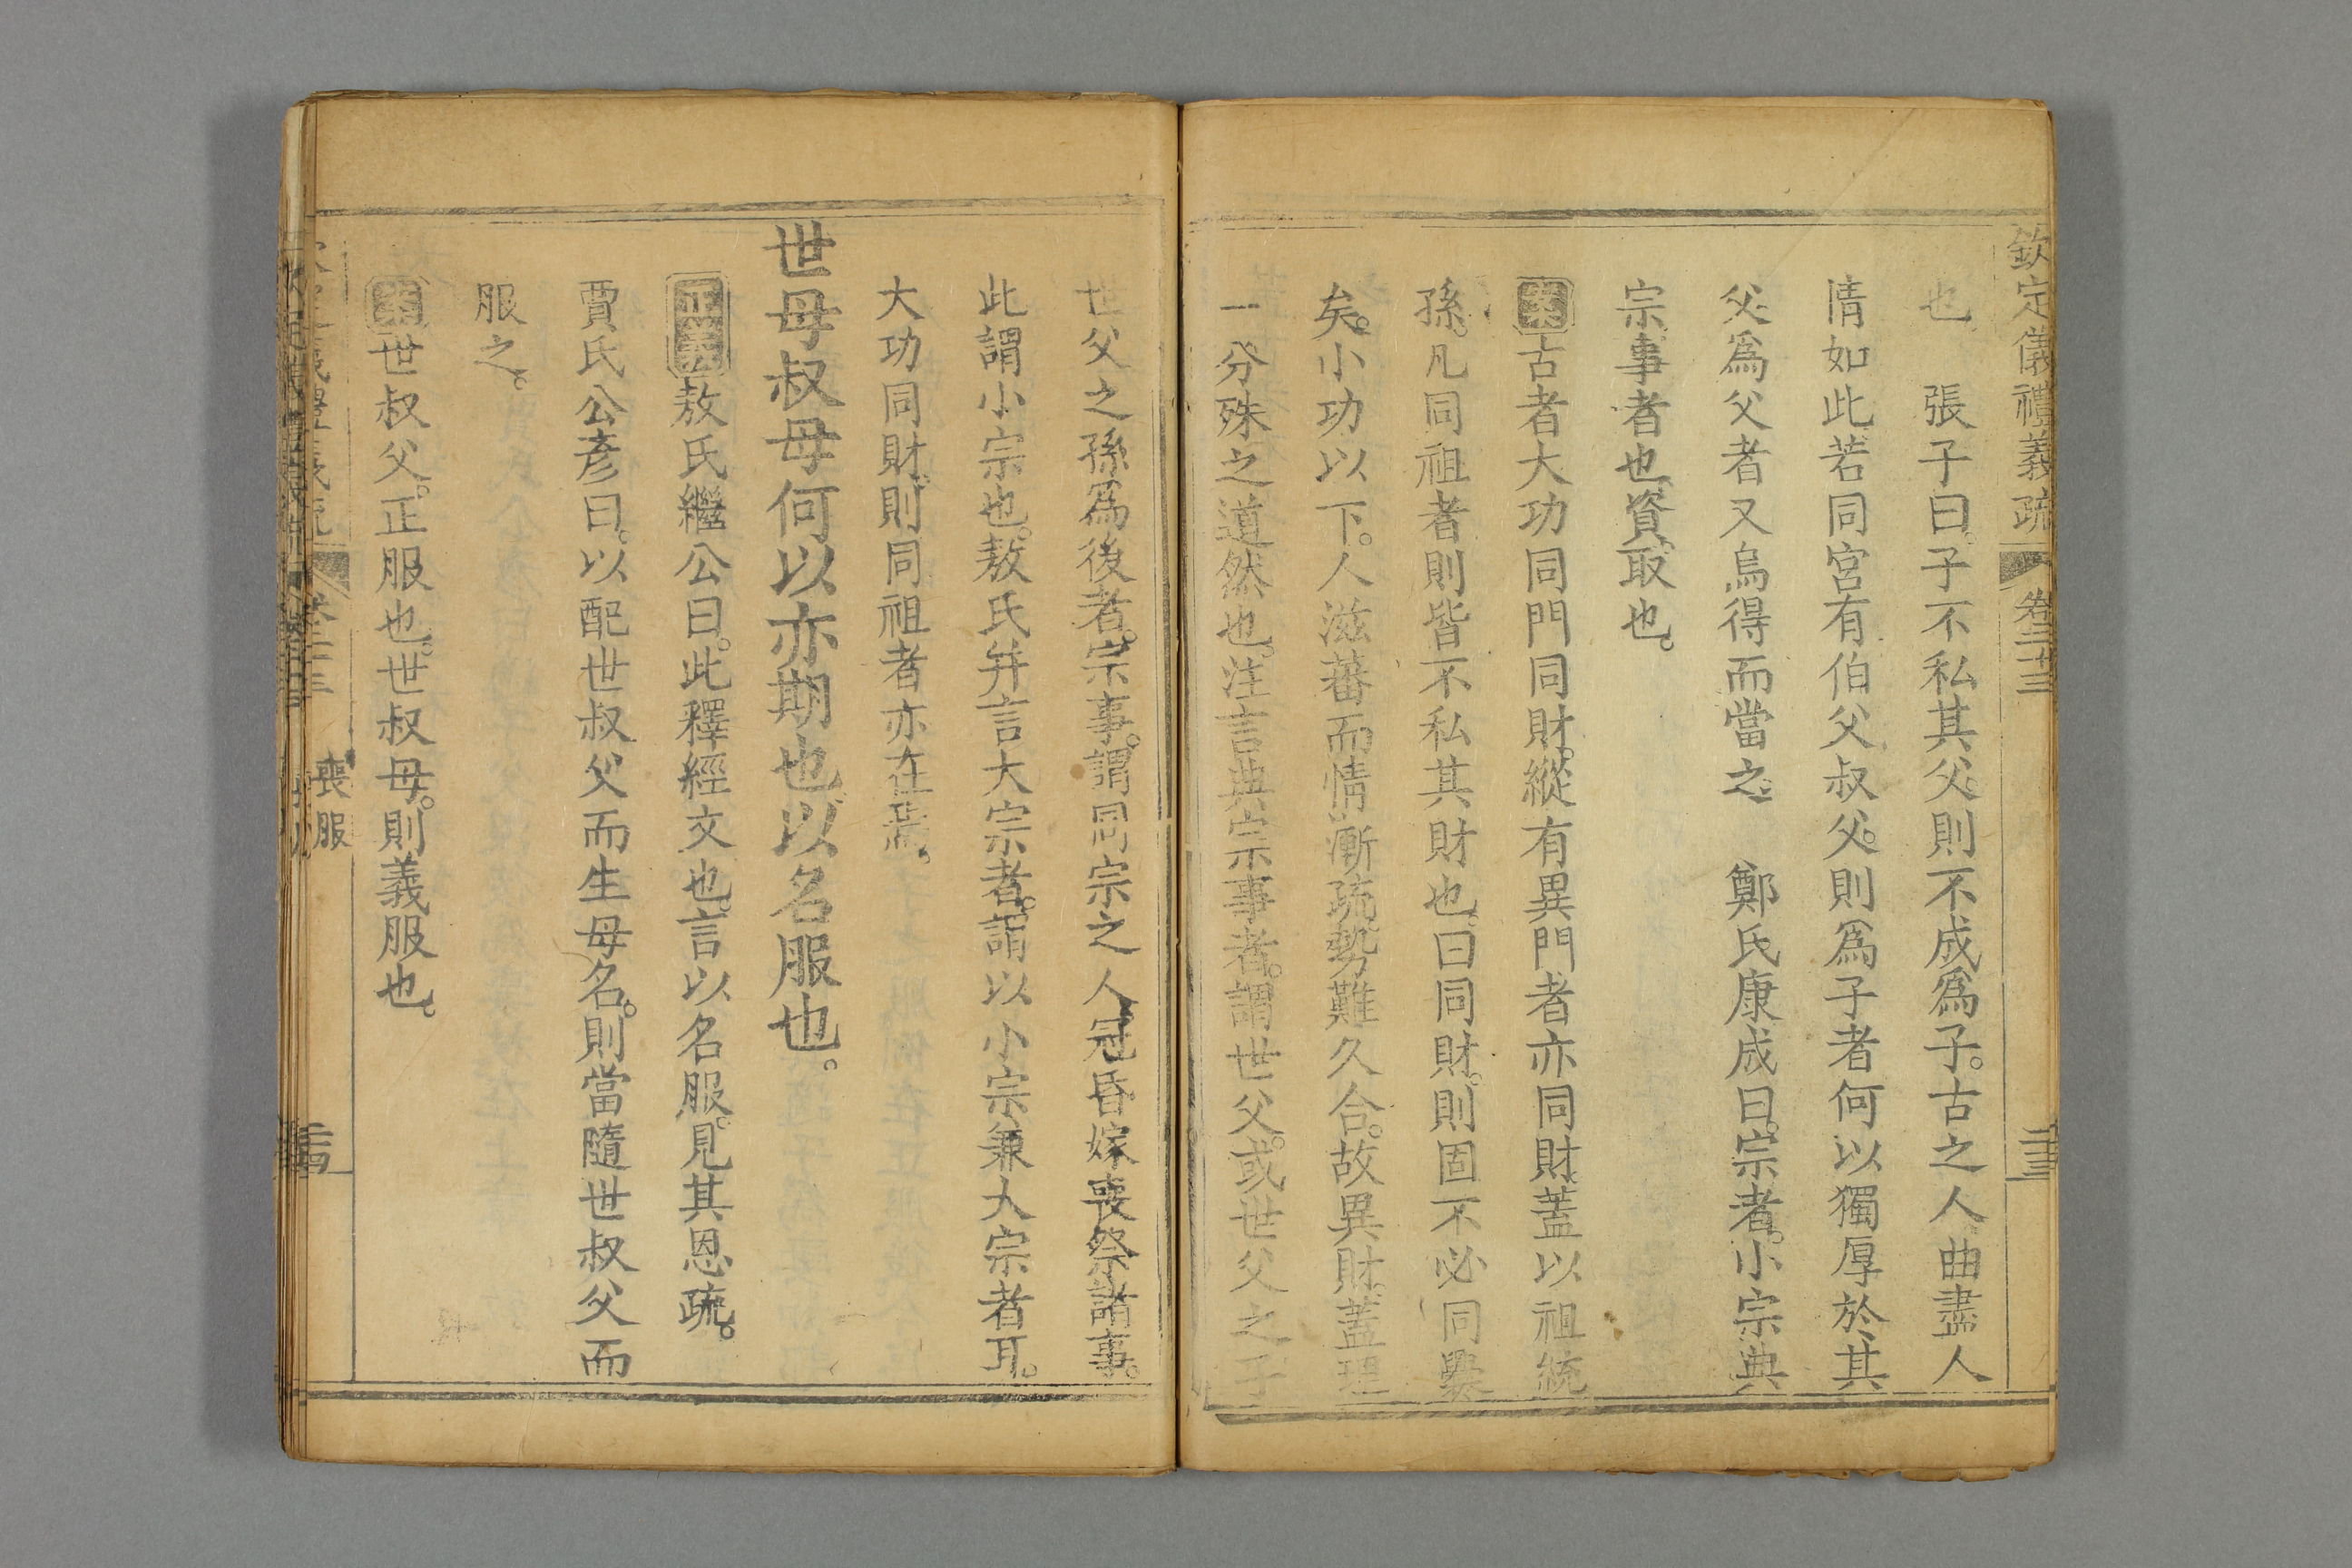 欽定儀禮義疏 卷二十三 二十三
也 張子曰子不私其父則不成爲子。古之人曲盡人
情如此若同宮有伯父叔父。則爲子者何以獨厚於其
父爲父者又烏得而當之 鄭氏康成曰。宗者。小宗典
宗事者也。資取也。
案古者大功同門同財。縱有異門者亦同財蓋以祖統
孫。凡同祖者則皆不私其財也。曰同財。則固不必同爨
矣。小功以下。人滋蕃而情漸疏。勢難久合。故異財。蓋理
一分殊之道然也。注言典宗事者。謂世父。或世父之子
世父之孫爲後者。宗事。謂同宗之人冠昏嫁喪祭諸事。
此謂小宗也。敖氏并言大宗者。謂以小宗兼大宗者耳。
大功同財。則同祖者亦在焉。
世母叔母何以亦期也以名服也。
正義敖氏繼公曰。此釋經文也。言以名服。見其恩疏。
賈氏公彥曰。以配世叔父而生母名。則當隨世叔父而
服之。
案世叔父。正服也。世叔母。則義服也。
喪服